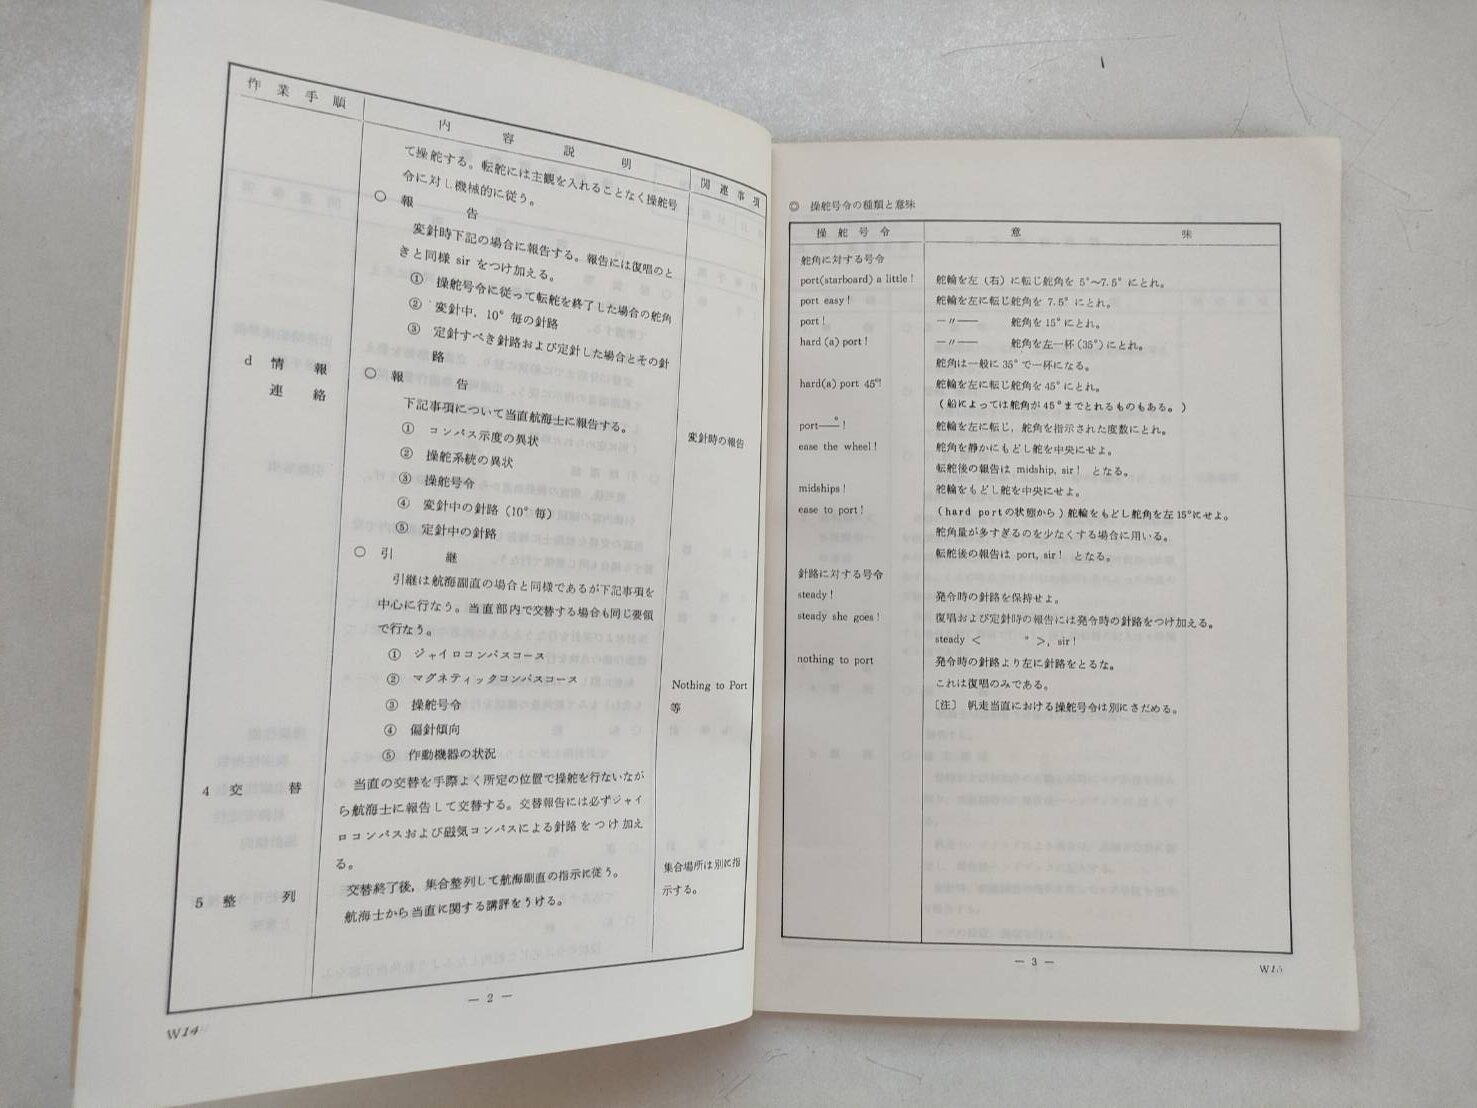 作業手順
内容説明
関連事項
て操舵する。転舵には主観を入れることなく操舵号
令に対し機械的に従う。
○ 報告
変針時下記の場合に報告する。報告には復唱のと
きと同様 sir をつけ加える。
① 操舵号令に従って転舵を終了した場合の舵角
② 変針中，10°毎の針路
③ 定針すべき針路および定針した場合とその針
路
d 情報
連絡
○ 報告
下記事項について当直航海士に報告する。
変針時の報告
① コンパス示度の異状
② 操舵系統の異状
③ 操舵号令
④ 変針中の針路（10°毎）
⑤ 定針中の針路
○ 引継
引継は航海副直の場合と同様であるが下記事項を
中心に行なう。当直部内で交替する場合も同じ要領
で行なう。
① ジャイロコンパスコース
② マグネティックコンパスコース
Nothing to Port
等
③ 操舵号令
④ 偏針傾向
⑤ 作動機器の状況
4 交替
当直の交替を手際よく所定の位置で操舵を行ないなが
ら航海士に報告して交替する。交替報告には必ずジャイ
ロコンパスおよび磁気コンパスによる針路をつけ加え
る。
5 整列
交替終了後，集合整列して航海副直の指示に従う。
航海士から当直に関する講評をうける。
集合場所は別に指
示する。
— 2 —
W14
◎ 操舵号令の種類と意味
操舵号令
意味
舵角に対する号令
port(starboard) a little! 舵輪を左（右）に転じ舵角を 5°～7.5° にとれ。
port easy! 舵輪を左に転じ舵角を 7.5° にとれ。
port! —〃— 舵角を15°にとれ。
hard (a) port! —〃— 舵角を左一杯(35°)にとれ。
舵角は一般に35°で一杯になる。
hard(a) port 45°! 舵輪を左に転じ舵角を45°にとれ。
(船によっては舵角が45°までとれるものもある。)
port—°! 舵輪を左に転じ，舵角を指示された度数にとれ。
ease the wheel! 舵角を静かにもどし舵を中央にせよ。
転舵後の報告は midship, sir! となる。
midships! 舵輪をもどし舵を中央にせよ。
ease to port! (hard portの状態から)舵輪をもどし舵角を左15°にせよ。
舵角量が多すぎるのを少なくする場合に用いる。
転舵後の報告は port, sir! となる。
針路に対する号令
steady! 発令時の針路を保持せよ。
steady she goes! 復唱および定針時の報告には発令時の針路をつけ加える。
steady < ° >, sir!
nothing to port 発令時の針路より左に針路をとるな。
これは復唱のみである。
〔注〕 帆走当直における操舵号令は別にさだめる。
— 3 —
W15